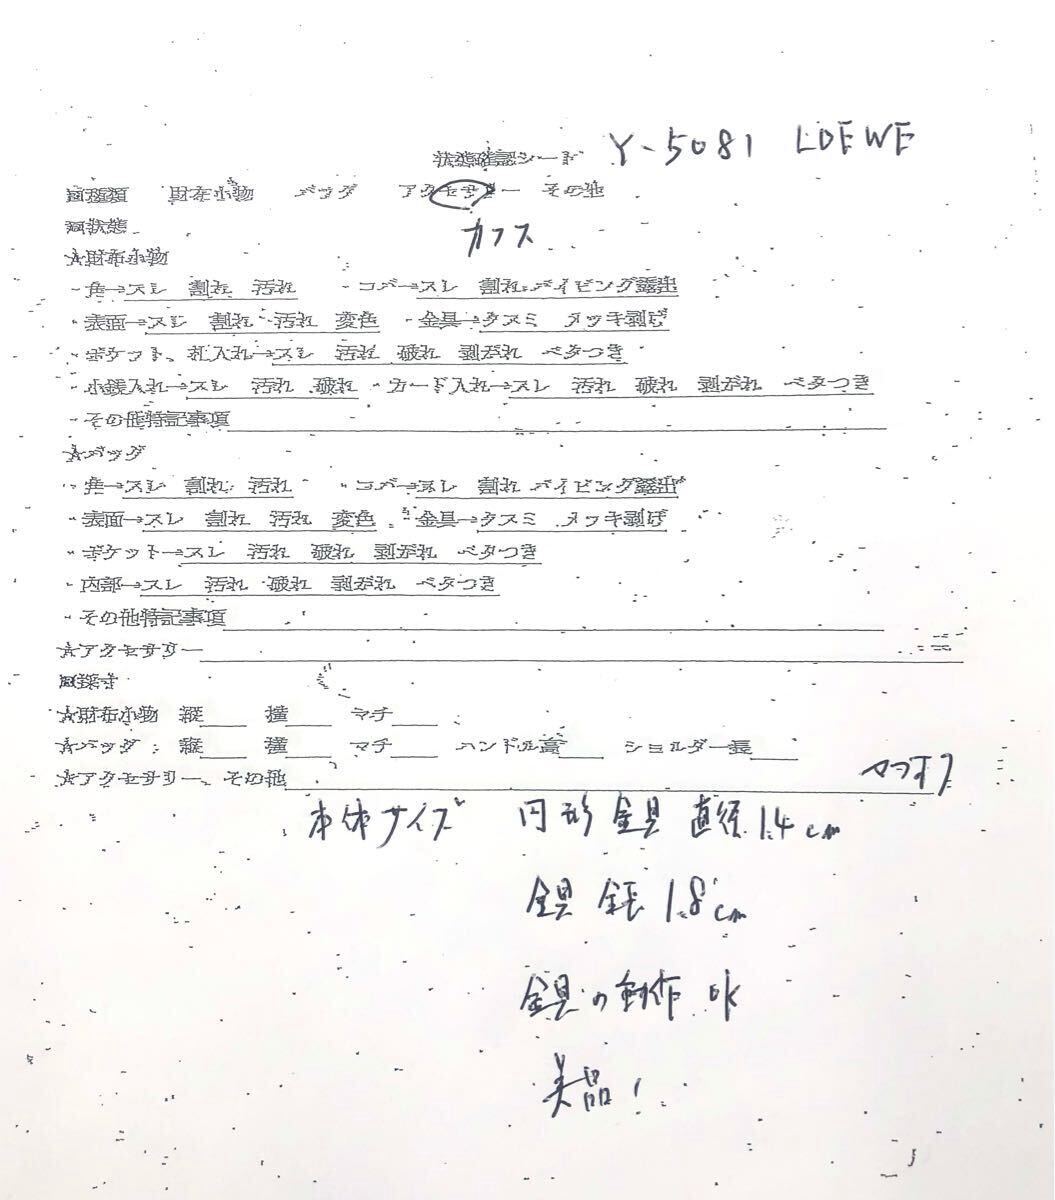 状態確認シート Y-5081 LOEWE
回種類 財布小物 バッグ アクセサリー その他
カフス
回状態
☆財布小物
・角→スレ 割れ 汚れ ・コバ→スレ 割れ パイピング露出
・表面→スレ 割れ 汚れ 変色 ・金具→クスミ メッキ剥げ
・ポケット、札入れ→スレ 汚れ 破れ 剥がれ ベタつき
・小銭入れ→スレ 汚れ 破れ ・カード入れ→スレ 汚れ 破れ 剥がれ ベタつき
・その他特記事項
☆バッグ
・角→スレ 割れ 汚れ ・コバ→スレ 割れ パイピング露出
・表面→スレ 割れ 汚れ 変色 ・金具→クスミ メッキ剥げ
・ポケット→スレ 汚れ 破れ 剥がれ ベタつき
・内部→スレ 汚れ 破れ 剥がれ ベタつき
・その他特記事項
☆アクセサリー
回採寸
☆財布小物 縦 横 マチ
☆バッグ 縦 横 マチ ハンドル高 ショルダー長
☆アクセサリー、その他
本体サイズ 円形金具 直径 1.4cm
金具 全長 1.8cm
金具の動作 OK
美品!